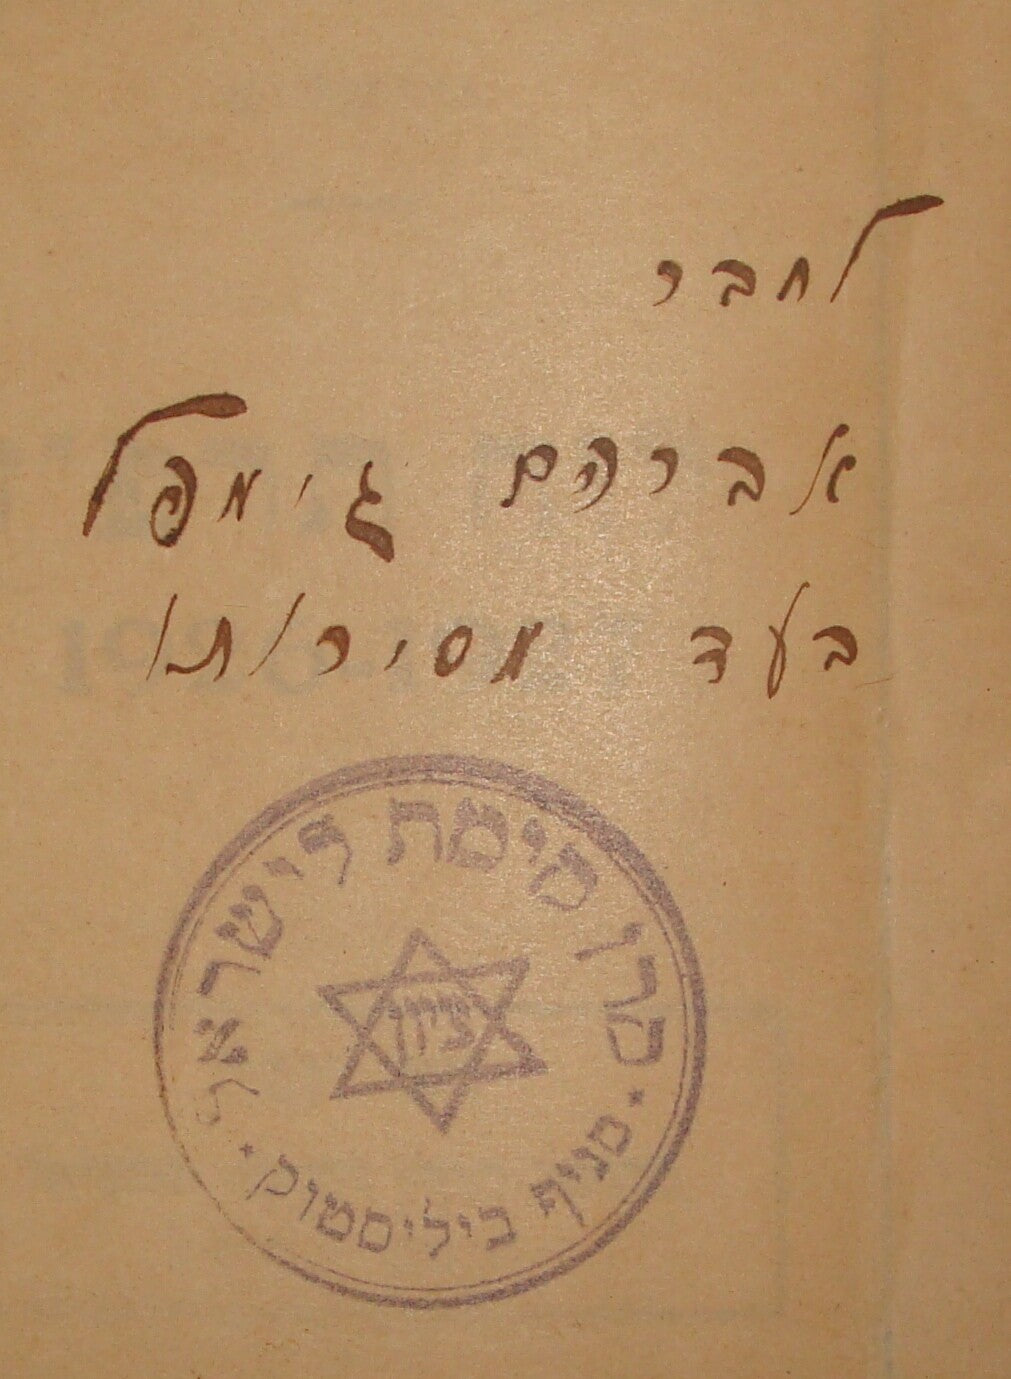 לחבר
אברהם גימפל
בעד מסירותו
קרן קימת לישראל
ציון
· סניף ביליסטוק ·